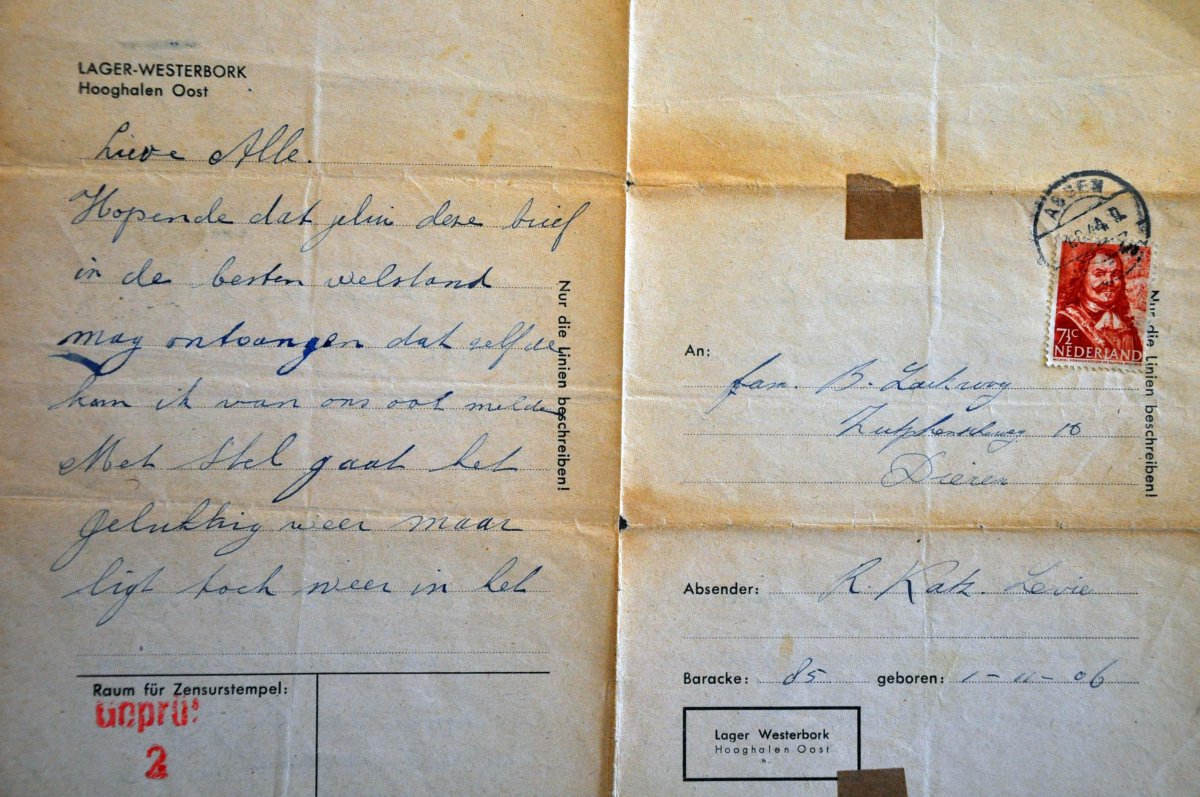 LAGER-WESTERBORK
Hooghalen Oost
Lieve Alle.
Hopende dat julie deze brief
in de besten welstand
mag ontvangen dat selfde
kan ik van ons oot melde
Met Stel gaat het
gelukkig weer maar
ligt toch weer in het
Nur die Linien beschreiben!
Raum für Zensurstempel:
Geprüf
2
ASSEN
7½c
NEDERLAND
Nur die Linien beschreiben!
An:
fam. B.
Zutphenscheweg 10
Dieren
Absender: R. Katz-Levie
Baracke: 85 geboren: 1-11-06
Lager Westerbork
Hooghalen Oost